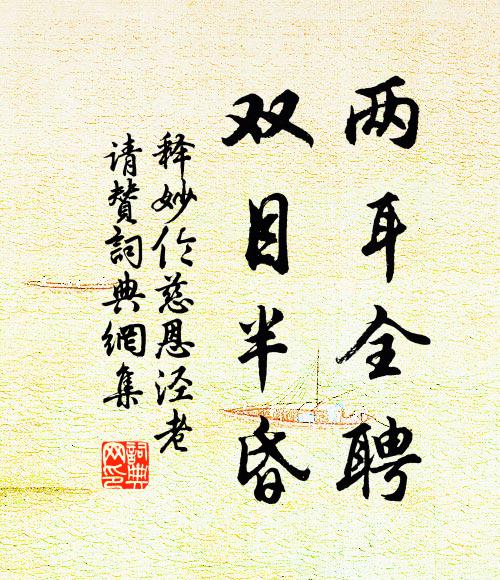 两耳全聘
双目半昏
释妙伦慈恩泾老
请赞詞典網集
詞典网印